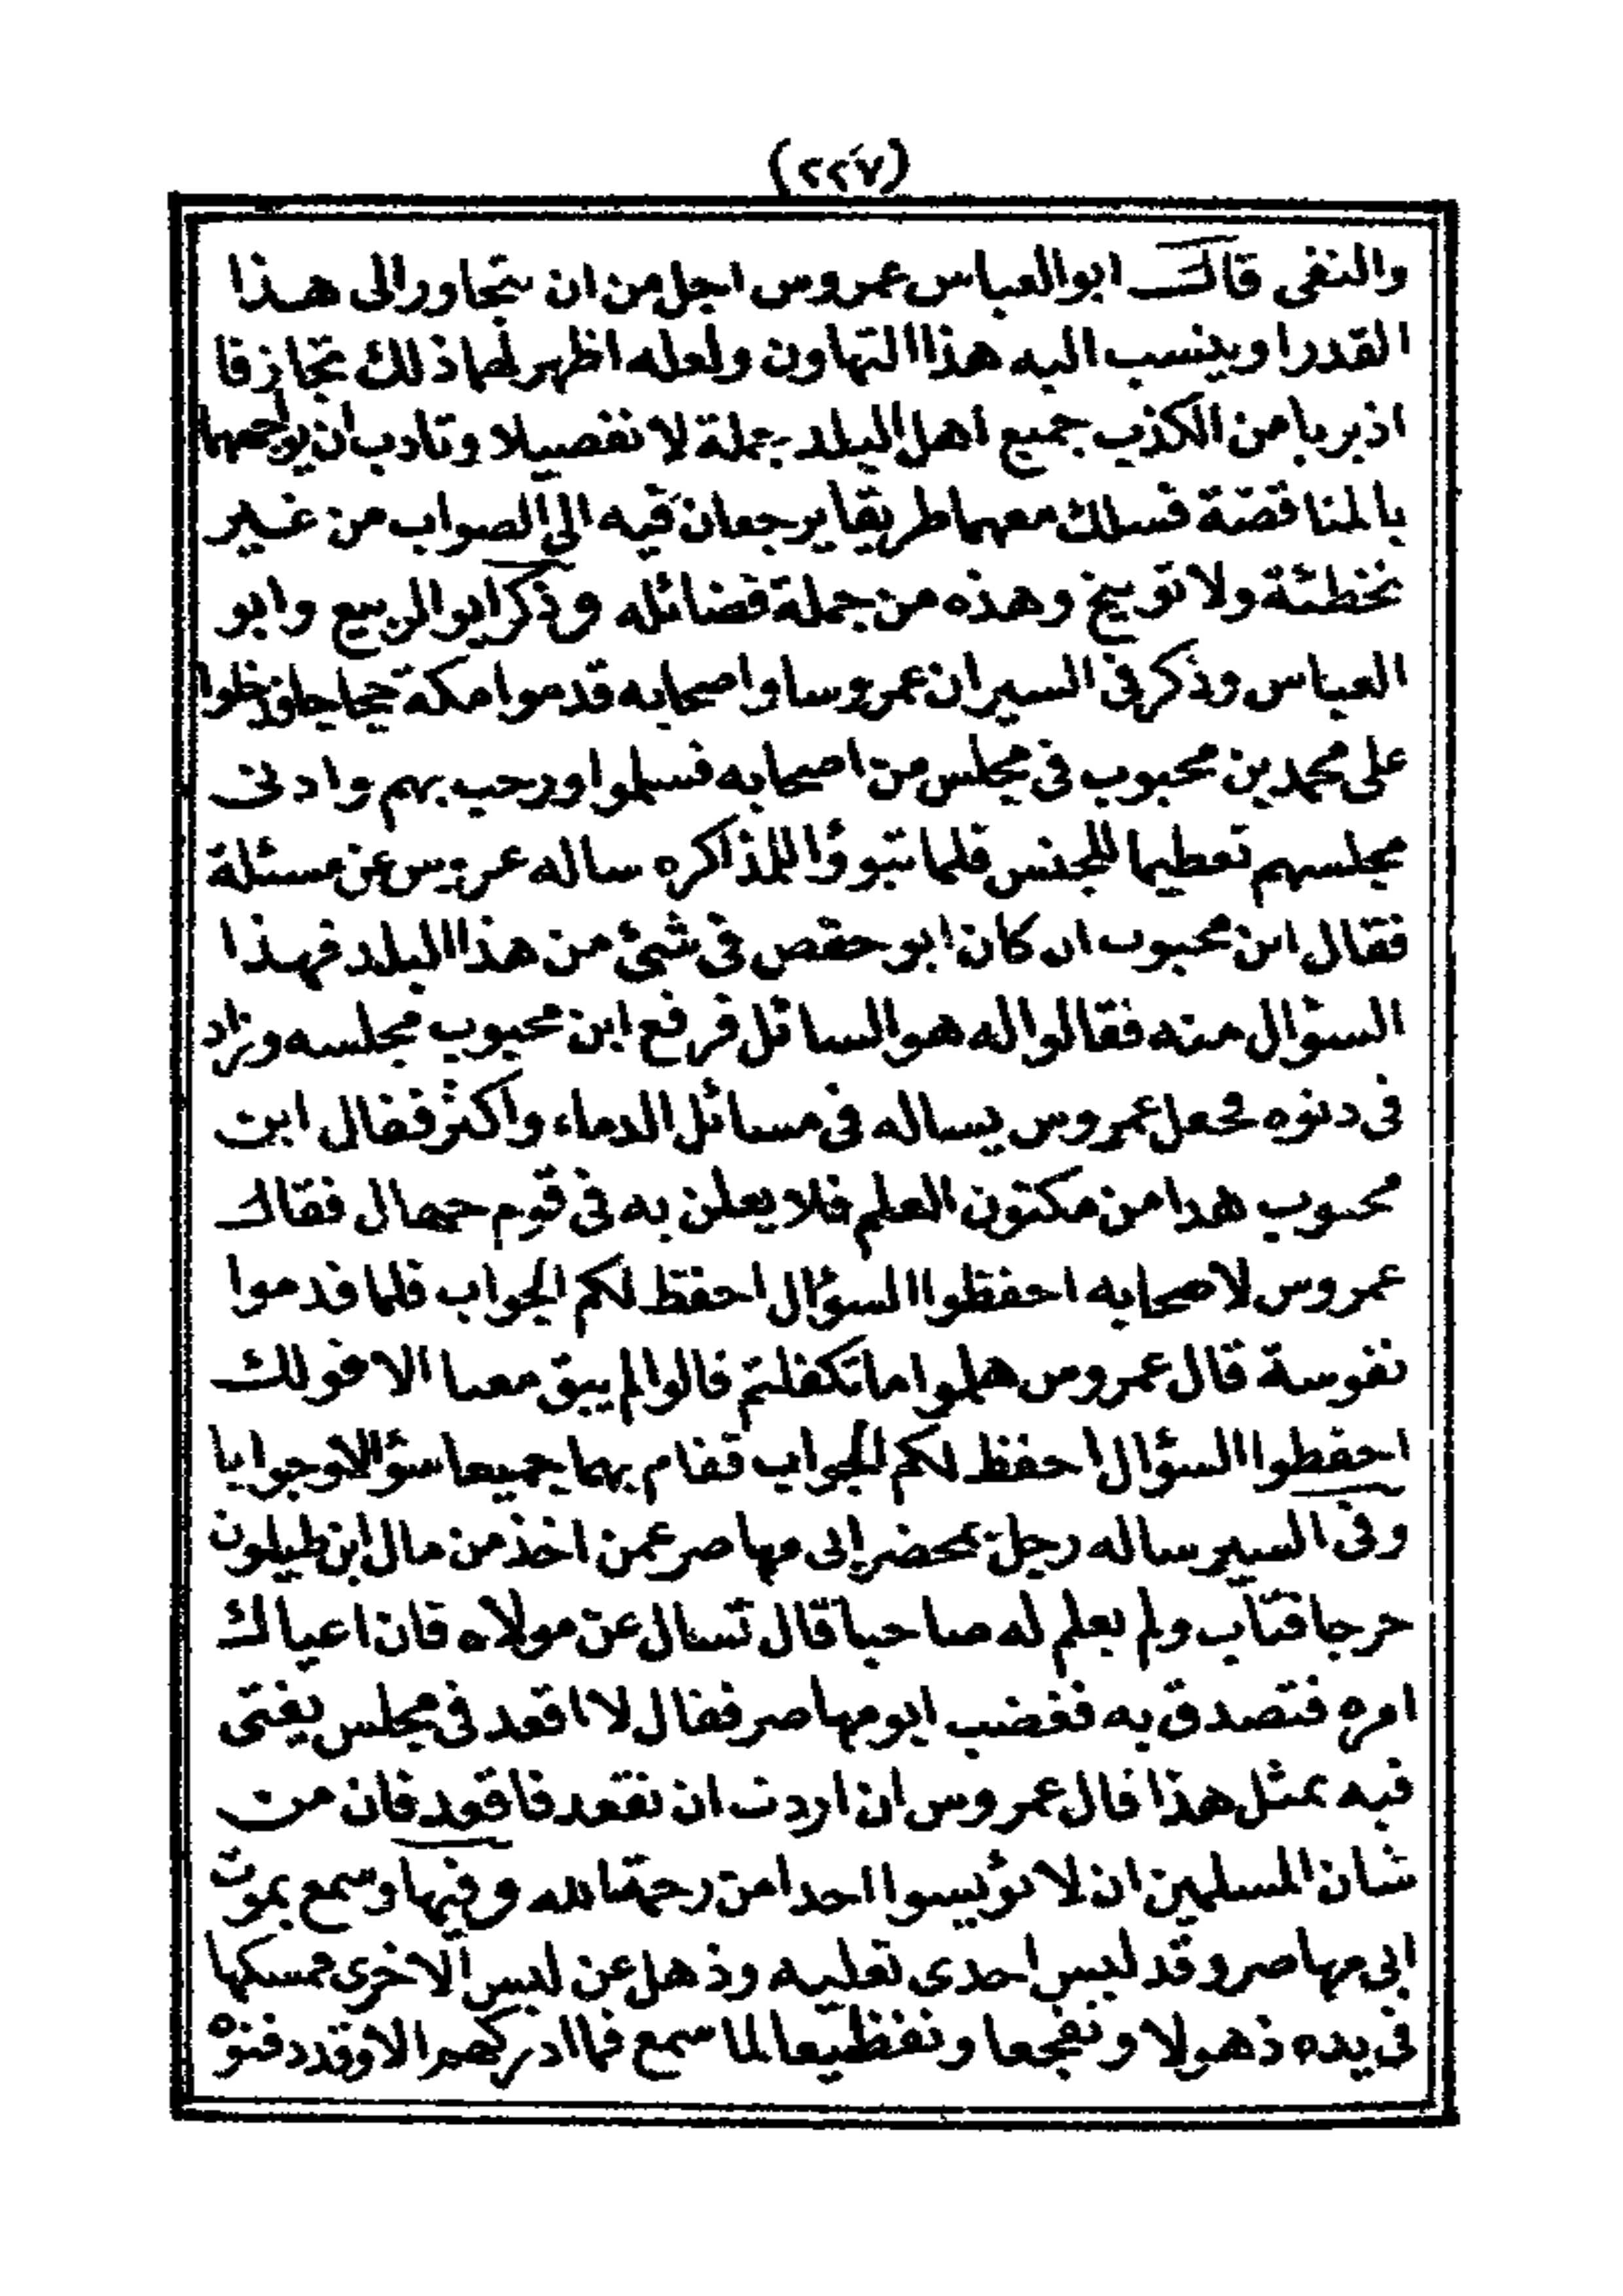 (٢٢٧)
والنفى قال ابو العباس عمروس اجل من ان يتجاور الى هذا
القدر او ينسب اليه هذا التهاون ولعله اظهر لهما ذلك تجاز قا
اذ بريا من الكذب جميع اهل البلد جملة لا تفصيلا وتادب ان يواجهها
بالمناقضة فسلك معهما طريقا يرجعان فيه الى الصواب من غير
تخطئة ولا توبيخ وهذه من جملة فضائله وذكر ابو الربيع وابو
العباس وذكر فى السير ان عمروسا واصحابه قدموا مكة حجاجا فدخلوا
على محمد بن محبوب فى مجلس من اصحابه فسلموا ورحب بهم وادنى
مجلسهم تعظيما للجنس فلما تبوؤا للمذاكره ساله عمروس عن مسئلة
فقال ابن محبوب ان كان ابو حفص فى شئ من هذا البلد فهذا
السؤال منه فقالوا له هو السائل فرفع ابن محبوب مجلسه وزاد
فى دنوه فجعل عمروس يساله فى مسائل الدماء واكثر فقال ابن
محبوب هدا من مكتون العلم فلا يعلن به فى قوم جهال فقال
عمروس لاصحابه احفظوا السؤال احفظ لكم الجواب فلما قدموا
نفوسة قال عمروس هلموا ما تكفلتم قالوا لم يبق معنا الا قولك
احفظوا السؤال احفظ لكم الجواب فقام بهما جميعا سؤالا وجوابا
وفى السير ساله رجل بمحضر ابى مهاصر عمن اخذ من مال ابن طيلون
خرجا فتاب ولم يعلم له صاحبا قال تسال عن مولاه فان اعياك
امره فتصدق به فغضب ابو مهاصر فقال لا اقعد فى مجلس يفتى
فيه بمثل هذا قال عمروس ان اردت ان تقعد فاقعد فان من
شان المسلمين ان لا تؤيسوا احدا من رحمة الله وفيها وسمع بموت
ابى مهاصر وقد لبس احدى نعليه وذهل عن لبس الاخرى فمسكها
فى يده ذهولا وتفجعا وتفظيعا لما سمع فما ادركهم الا وقد دفنوه